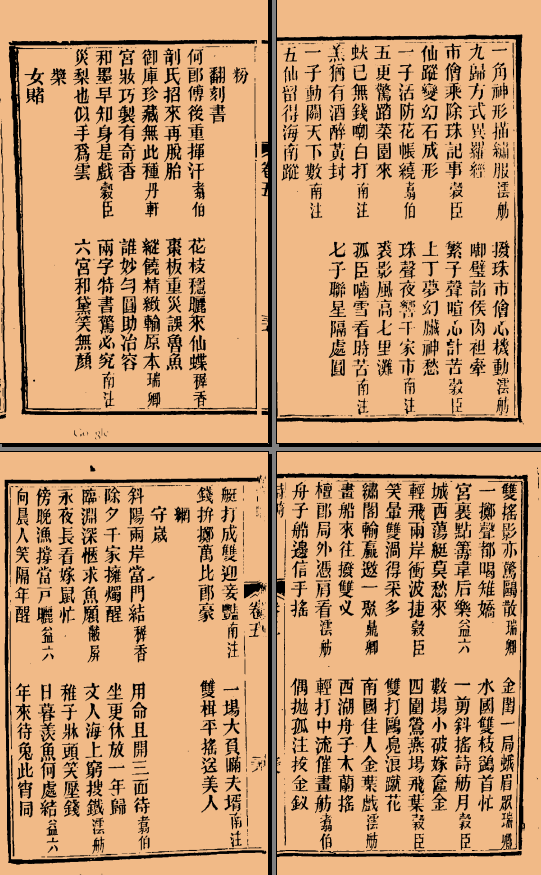 一角神形描繡服澐舫　撥珠市儈心機動澐舫
九歸方式異羅經　啣璧諸侯肉袒牽
市儈乘除珠記事穀臣　繁子聲喧心計苦穀臣
仙蹤變幻石成形　上丁夢幻臟神愁
一子活防花帳繞翥伯　珠聲夜響千家市南注
五更驚路菜園來　裘影風高七里灘
蚨已無錢嘲白打南注　孤臣嚙雪看時苦南注
羔猶有酒醉黃封　七子聯星隔處圓
一子動關天下數南注
五仙留得海南蹤
粉
翻刻書
何郎傅後重揮汗翥伯　花枝穩曬來仙蝶稺香
剞氏招來再脫胎　棗板重災誤魯魚
御庫珍藏無此種丹軒　縱饒精緻輸原本瑞卿
宮妝巧製有奇香　誰妙勻圓助冶容
和墨早知身是戲穀臣　兩字特書驚必究南注
災梨也似手爲雲　六宮和黛笑無顏
槳
女賭
雙搖影亦驚鷗散瑞卿　金閨一局蛾眉聚瑞卿
一擲聲都喝雉嬌　水國雙枝鷁首忙
宮裏點籌韋后樂益六　一剪斜搖詩舫月穀臣
城西蕩艇莫愁來　數場小破嫁奩金
輕飛兩岸衝波捷穀臣　四圍鶯燕場飛葉穀臣
笑暈雙渦得采多　雙打鷗鳧浪蹴花
繡閣輸贏邀一聚鼎卿　南國佳人金葉戲澐舫
畫船來往撥雙叉　西湖舟子木蘭搖
檀郎局外憑肩看澐舫　輕打中流催畫舫翥伯
舟子船邊信手搖　偶拋孤注拔金釵
艇打成雙迎妾豔南注　一場大負瞞夫壻南注
錢拚擲萬比郎豪　雙楫平搖送美人
網
守歲
斜陽兩岸當門結稺香　用命且開三面待翥伯
除夕千家擁燭醒　坐更休放一年歸
臨淵深愜求魚願馥屏　文人海上窮搜鐵澐舫
永夜長看嫁鼠忙　稚子牀頭笑壓錢
傍晚漁撐當戶曬益六　日暮羨魚何處結益六
向晨人笑隔年醒　年來待兔此宵同
卷五
Google